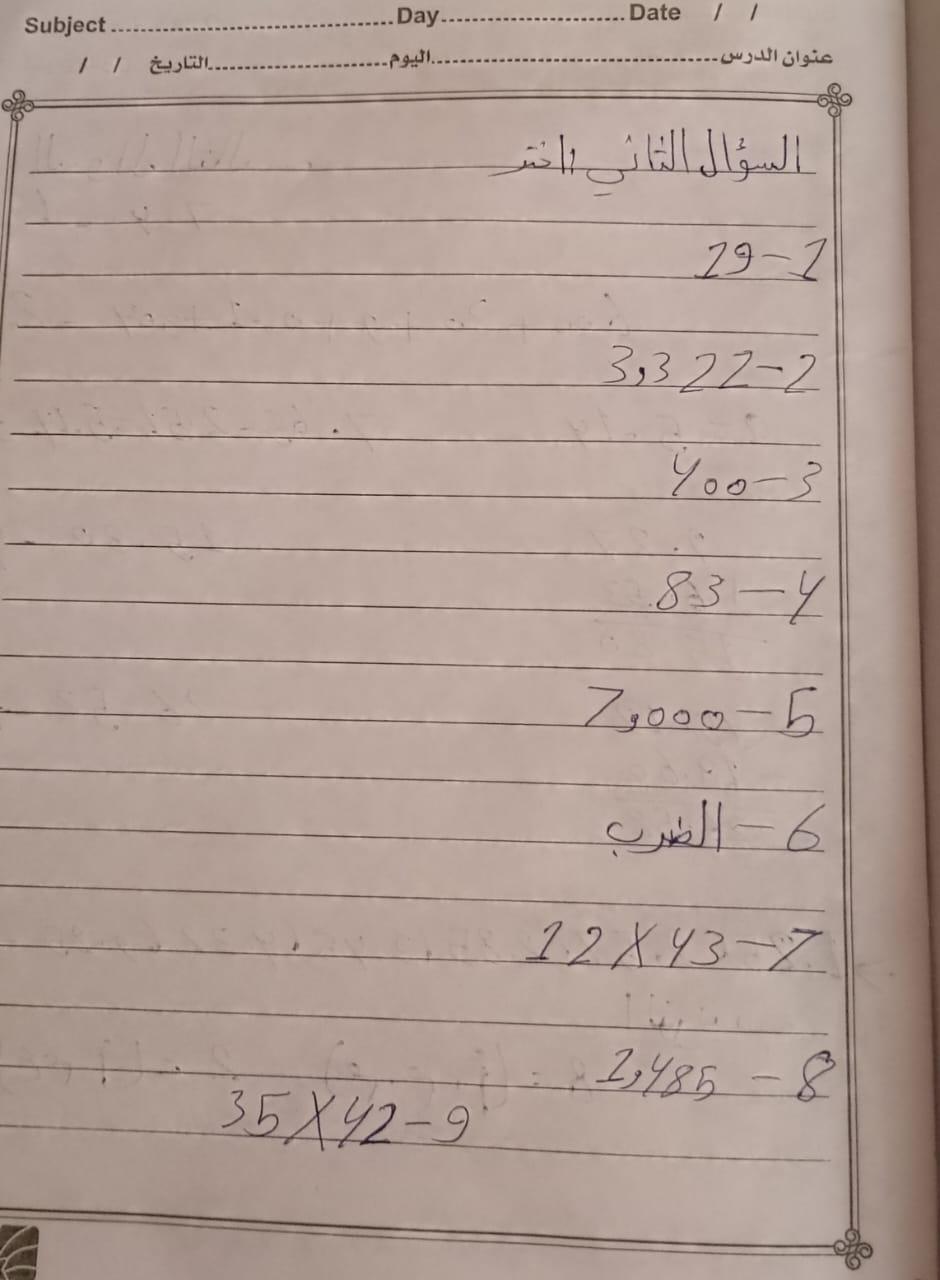 Subject ........................ Day ........................ Date / /
عنوان الدرس ........................ اليوم ........................ التاريخ / /
السؤال الثاني / اختر
1 - 19
2 - 3,322
3 - 400
4 - 83
5 - 7,000
6 - الضرب
7 - 12 X 43
8 - 1,485
9 - 35 X 42